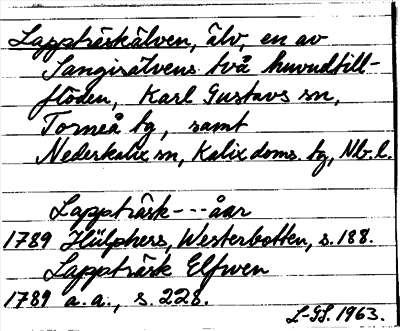 Lappträskälven, älv, en av
Sangisälvens två huvudtill-
flöden, Karl Gustavs sn,
Torneå tg, samt
Nederkalix sn, Kalix doms. tg, Nb. l.
Lappträsk---åar
1789 Hülphers, Westerbotten, s. 188.
Lappträsk Elfwen
1789 a. a., s. 228.
L-GL. 1963.